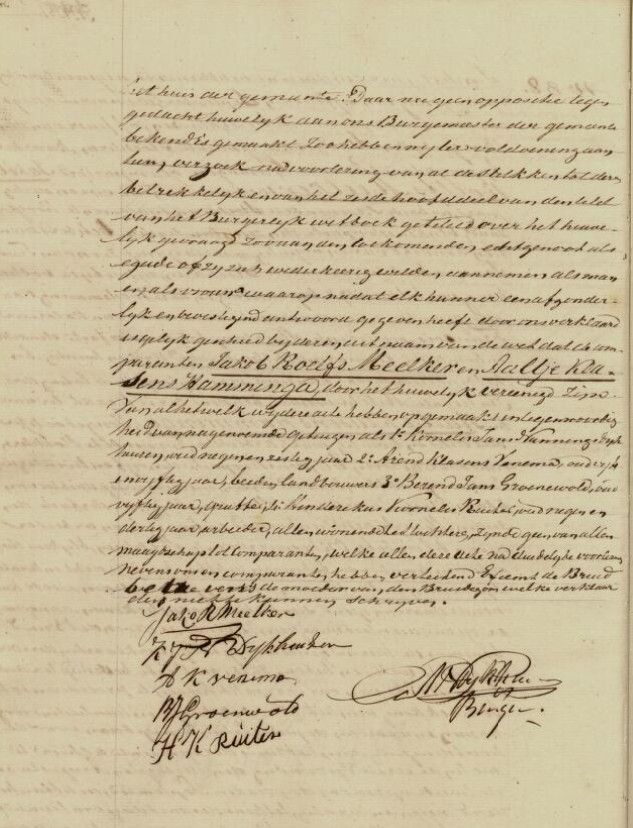 het huis der gemeente. Daar nu geen oppositie tegen
gedacht huwelijk aan ons Burgemeester der gemeente
bekend is gemaakt zoo hebben wij ter voldoening aan
hun verzoek na voorlezing van al de stukken tot dezen
betrekkelijk en van het zesde hoofddeel van den titel
van het Burgerlijk wetboek getiteld over het huwe-
lijk gevraagd zoo aan den toekomenden echtgenoot als
egade of zij zich wederkeerig wilden aannemen als man
en als vrouw waarop nadat elk hunner een afzonder-
lijk en bevestigend antwoord gegeven heeft door ons verklaard
is gelijk geschied bij dezen uit naam van de wet dat de com-
paranten Jakob Roelfs Meelker en Aaltje Kla-
sens Hamminga, door het huwelijk vereenigd zijn
Van al hetwelk wij deze acte hebben opgemaakt in tegenwoordig
heid van nagenoemde getuigen als 1e Kornelis Jans
huizen oud negen en zestig jaar 2e Arend Klasens Venema, oud
en vijftig jaar, beiden landbouwers 3e Berend Jans Groenewold, oud
vijftig jaar, 4e Hinderikus Kornelis Ruiter oud negen en
dertig jaar arbeider, allen wonende te zijnde geen van allen
maagschap tot Comparanten, welke allen deze acte na duidelijke voorlezing
nevens ons en comparanten hebben verteekend Exempt de Bruid
benevens de moeder van den Bruidegom welke verklaar
den niet te kunnen schrijven.
Jakob R Meelker
K J Dijkhuizen
A K venema
B J Groenwold
H K Ruiter
Burgr.